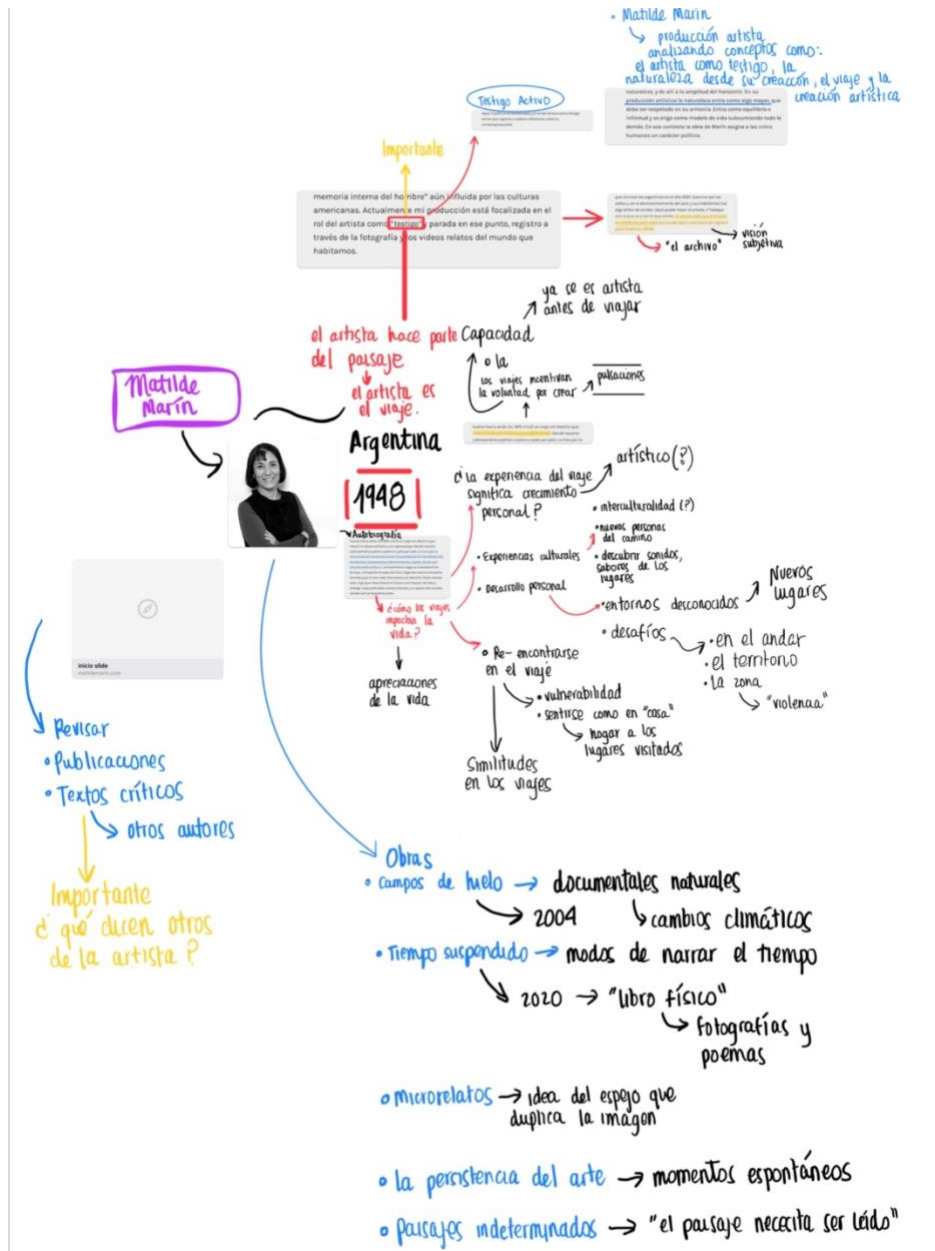 • Matilde Marín
producción artista
analizando conceptos como:
el artista como testigo, la
naturaleza desde su creacción, el viaje y la
creación artística
naturaleza, y de allí a la amplitud del horizonte. En su
producción artística la naturaleza entra como algo mayor, que
debe ser respetado en su armonía. Entra como equilibrio e
infinitud y se erige como modelo de vida subsumiendo todo lo
demás. En ese contexto la obra de Marín asigna a las crisis
humanas un carácter político.
Testigo Activo
Importante
memoria interna del hombre" aún influida por las culturas
americanas. Actualmente mi producción está focalizada en el
rol del artista como "testigo" y parada en ese punto, registro a
través de la fotografía y los videos relatos del mundo que
habitamos.
"el archivo"
visión
subjetiva
el artista hace parte
del paisaje
el artista es
el viaje.
Capacidad
ya se es artista
antes de viajar
o la
los viajes incentivan
la voluntad por crear
pulsaciones
Matilde
Marín
Argentina
1948
Autobiografía
¿cómo los viajes
impactan la
vida?
apreciaciones
de la vida
¿la experiencia del viaje
significa crecimiento
personal?
artístico(?)
• Experiencias culturales
• interculturalidad (?)
• nuevas personas
del camino
• descubrir sonidos,
sabores de los
lugares
• Desarrollo personal
• entornos desconocidos
Nuevos
lugares
• desafíos
• en el andar
• el territorio
• la zona
"violencia"
• Re-encontrarse
en el viaje
• vulnerabilidad
• sentirse como en "casa"
hogar a los
lugares visitados
Similitudes
en los viajes
inicio slide
matildemarin.com
Revisar
• Publicaciones
• Textos críticos
otros autores
Importante
¿qué dicen otros
de la artista?
Obras
• Campos de hielo → documentales naturales
2004
cambios climáticos
• Tiempo suspendido → modos de narrar el tiempo
2020 → "libro físico"
fotografías y
poemas
• microrelatos → idea del espejo que
duplica la imagen
• la persistencia del arte → momentos espontáneos
• paisajes indeterminados → "el paisaje necesita ser leído"